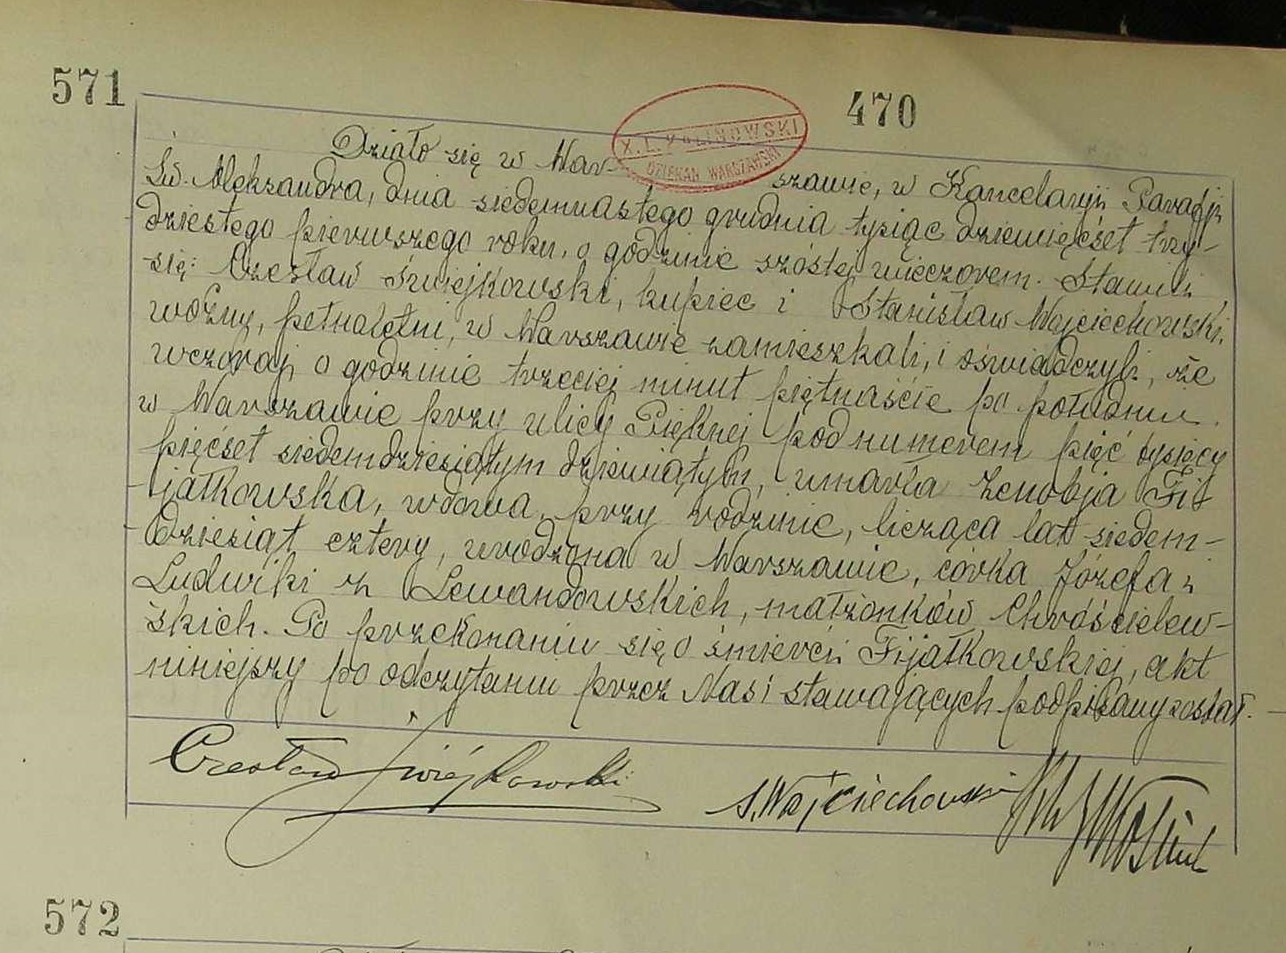 571
470
X. L. KALINOWSKI
DZIEKAN WARSZAWSKI
Działo się w War- szawie, w Kancelaryji Parafji
Św. Aleksandra, dnia siedemnastego grudnia tysiąc dziewięćset trzy-
dziestego pierwszego roku, o godzinie szóstej wieczorem. Stawili
się: Czesław Świejkowski, kupiec i Stanisław Wojciechowski,
woźny, pełnoletni, w Warszawie zamieszkali, i oświadczyli, że
wczoraj, o godzinie trzeciej minut piętnaście po południu
w Warszawie przy ulicy Pięknej pod numerem pięć tysięcy
pięćset siedemdziesiątym dziewiątym, umarła Zenobja Fi-
jałkowska, wdowa, przy rodzinie, licząca lat siedem-
dziesiąt cztery, urodzona w Warszawie, córka Józefa i
Ludwiki z Lewandowskich, małżonków Chróścielew-
skich. Po przekonaniu się o śmierci Fijałkowskiej, akt
niniejszy po odczytaniu przez Nas i stawających podpisany został.
Czesław Świejkowski
S. Wojciechowski
572